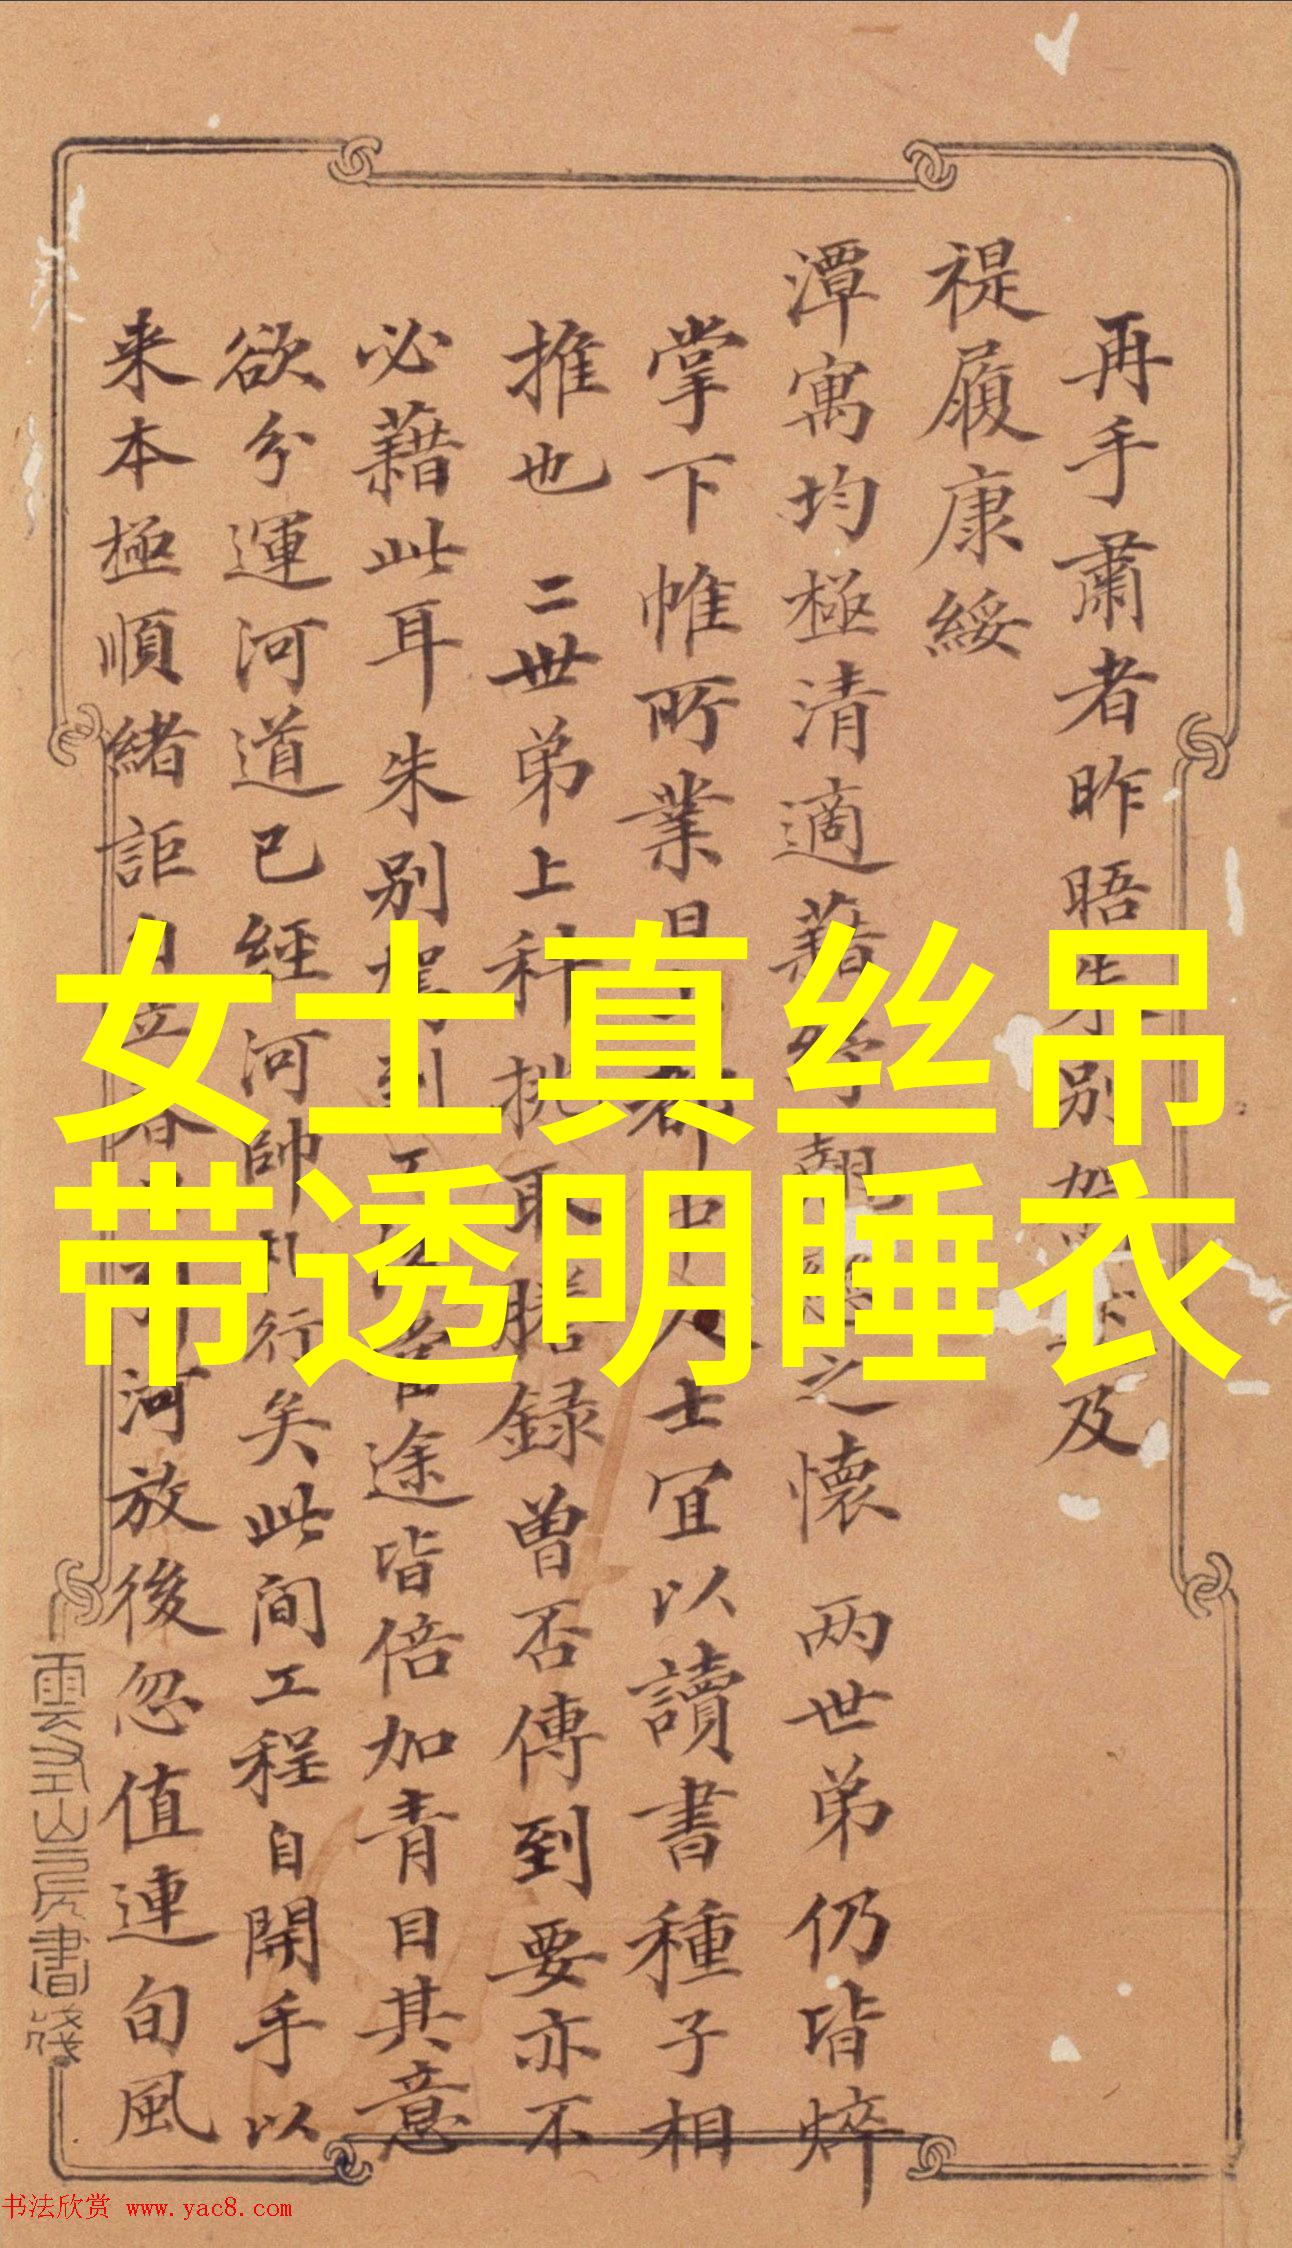 再手肅者昨晤朱別駕 及
禔履康綏
潭寓均極清適藉 之懷 两世弟仍皆焠
掌下帷所業 都中人士宜以讀書種子相
推也 二世弟上科挑取謄録曾否傳到要亦不
必藉此耳朱別駕到 途皆倍加青目其意
欲兮運河道已經河帥 行矣此间工程自開手以
来本極順緒詎自立春 河放後忽值連旬風
雲 山房書箋
女士真丝吊
带透明睡衣
书法欣赏 www.yac8.com